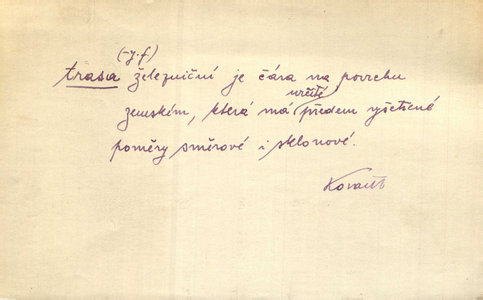 (-y.f)
trasa železniční je čára na povrchu
určité
zemském, která má předem vyšetřené
poměry směrové i sklonové.